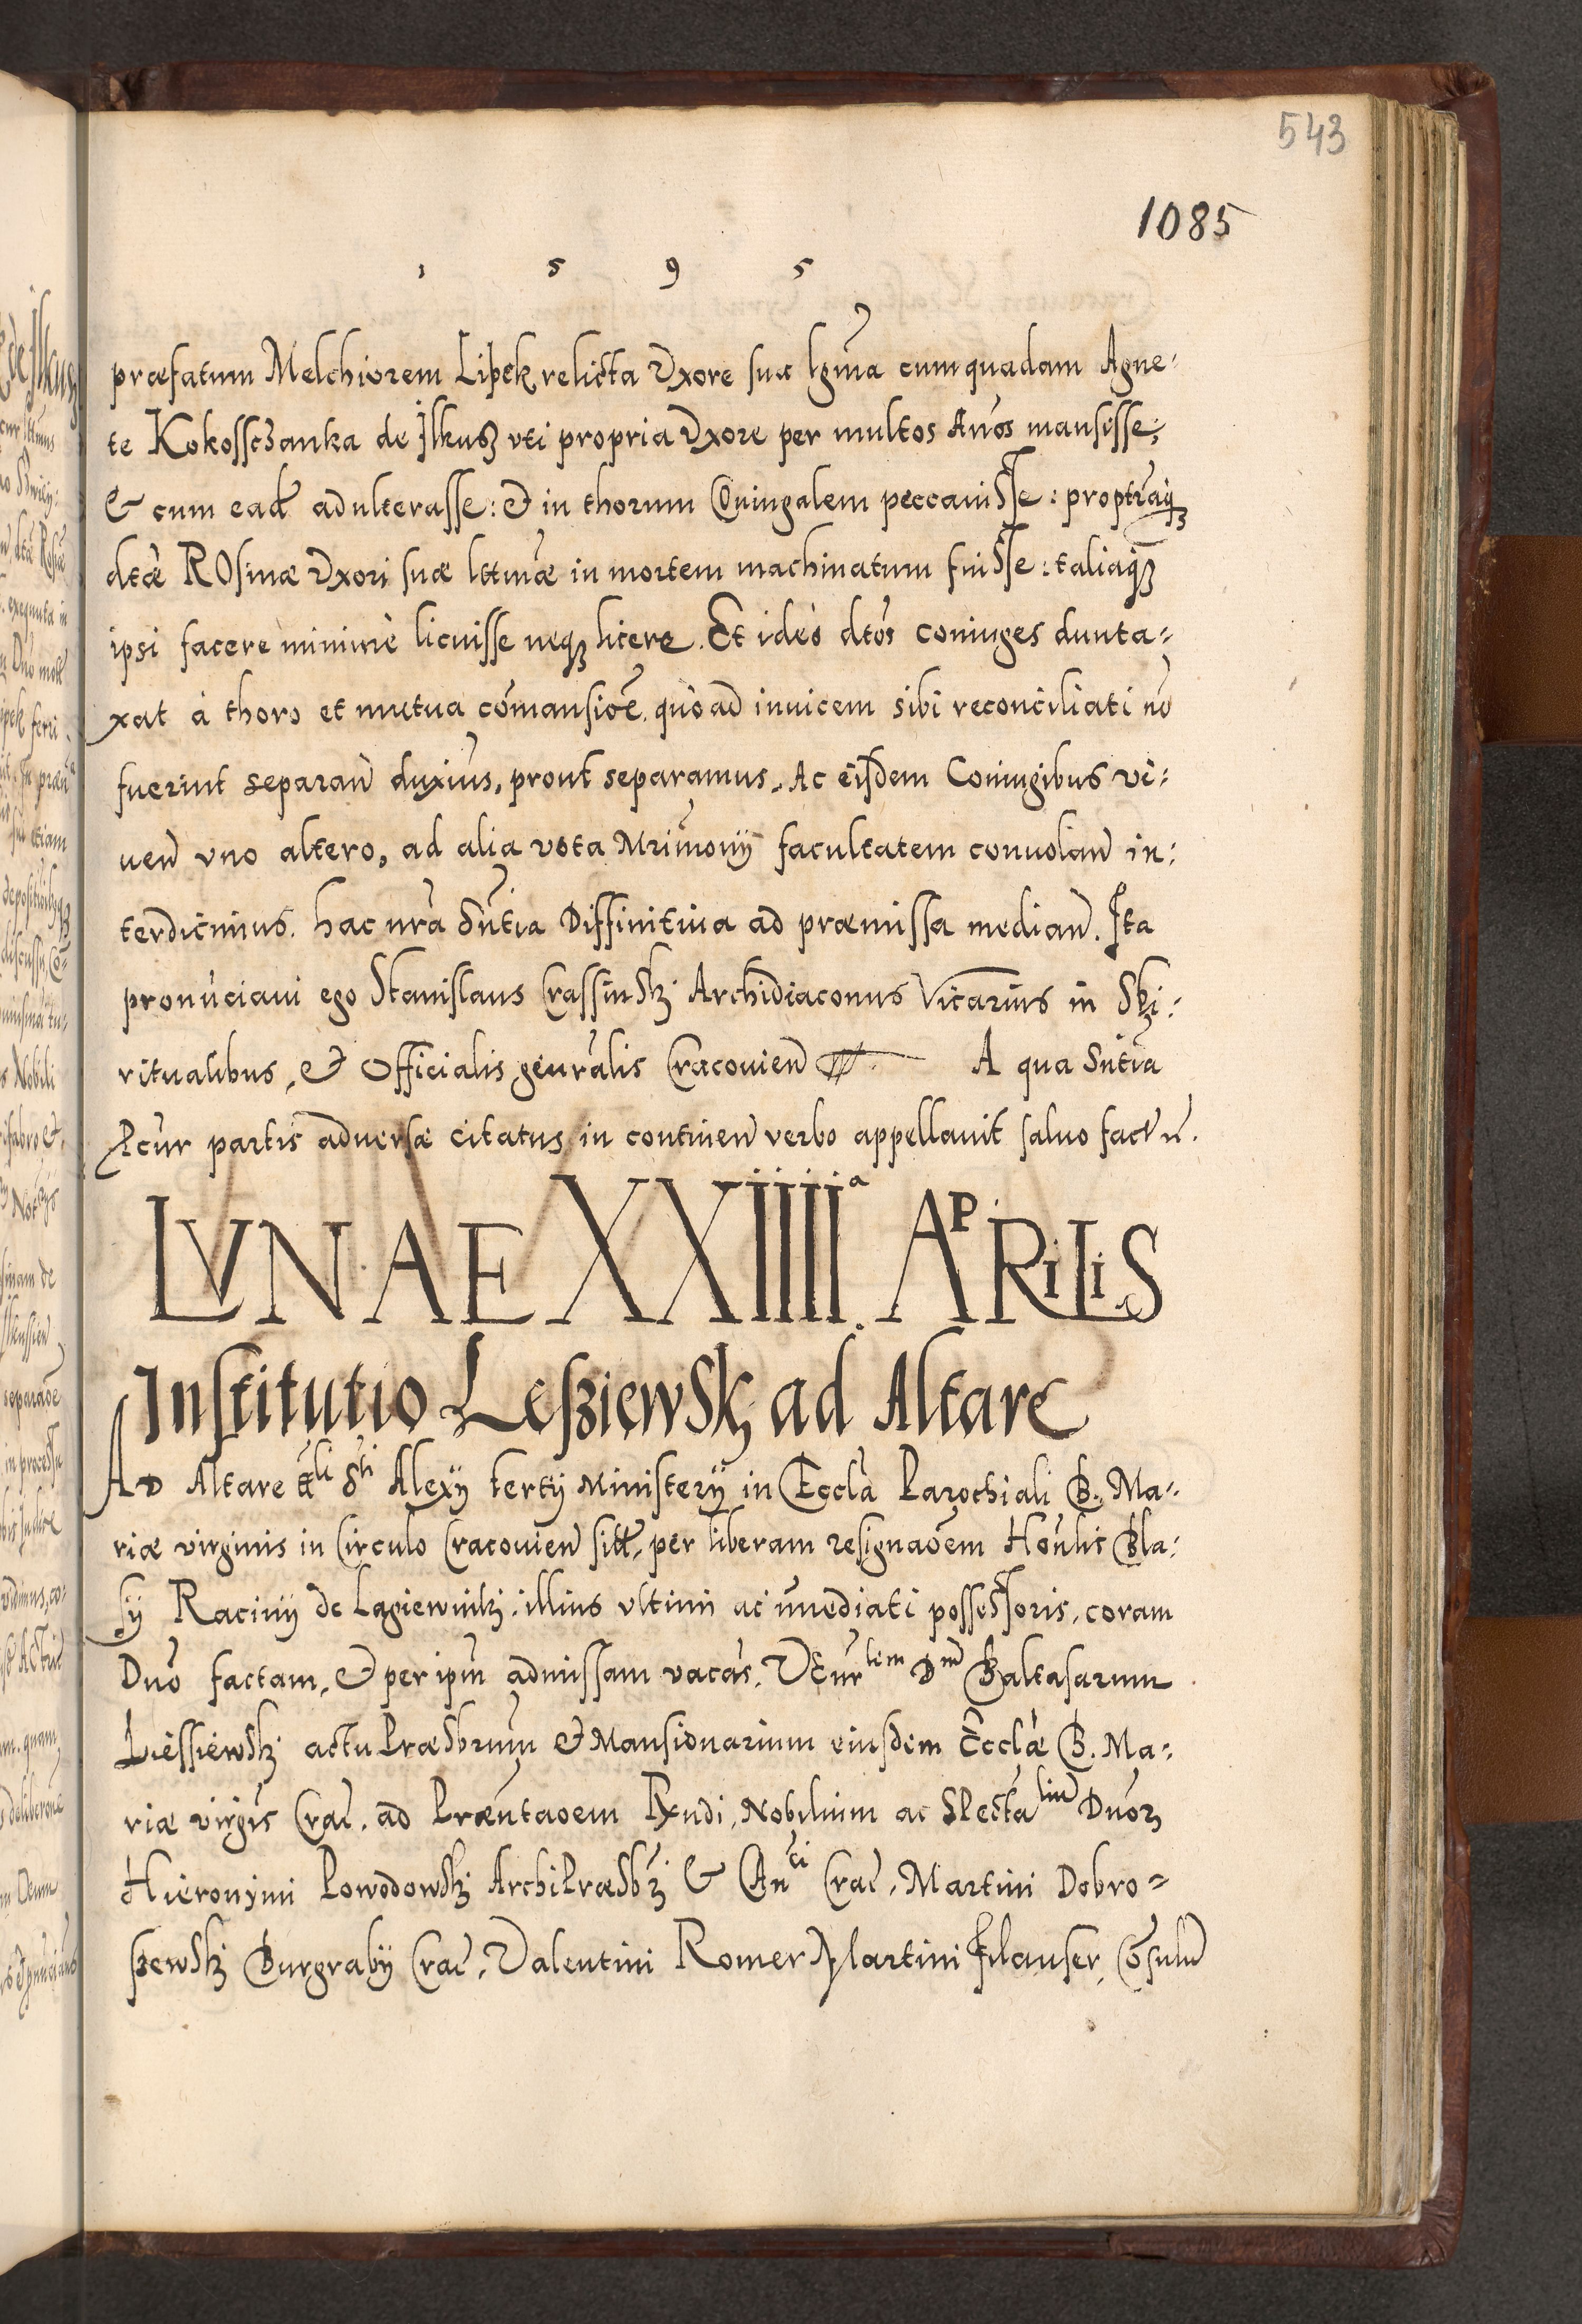 543
1085
1 5 9 5
præfatum Melchiorem Lipek relicta Vxore sua lgima cum quadam Agne-
te Kokosszanka de Jlkusz vti propria Vxore per multos Anos mansisse;
& cum ead adulterasse: & in thorum Coniugalem peccauisse: proptraq3
dtæ ROsinæ Vxori suæ lttmæ in mortem machinatum fuisse: taliaq3
ipsi facere minimè licuisse neq3 licere. Et ideò dtos coniuges dunta-
xat à thoro et mutua comansioe. quòad inuicem sibi reconciliati no
fuerint separan duxius, prout separamus. Ac eisdem Coniugibus vi-
uen vno altero, ad alia vota Mrimonij facultatem conuolan in-
terdicimus. hac nra Sntia Diffinitiua ad præmissa median. Jta
pronuciaui ego Stanislaus Crassinskj Archidiaconus Vicarius in Spi-
ritualibus, & Officialis genralis Cracouien A qua Sntia
Pcur partis aduersæ citatus in continen verbo appellauit saluo
LVNAE XXIIII.a APRILIS
Institutio Lesziewskj ad Altare
AD Altare tli Sti Alexij tertij Ministerij in Eccla Parochiali B. Ma-
riæ virginis in Circulo Cracouien sitt, per liberam resignaoem Honlis Bla-
sij Racinij de Lagiewnikj. illius vltimi ac imediati possessoris, coram
Dno factam, & per ipm admissam vacas. Venrlem Dnm Baltasarum
Liessiewskj actu Præsbrum & Mansionarium eiusdem Ecclæ B. Ma-
riæ virgis Crac. ad Præntaoem Rxndi, Nobilium ac Spectaliu Dnor3
Hieronymi Powodowskj ArchiPræsb3 & Cnci Crac, Martini Dobro-
szewskj Burgrabij Crac, Valentini Romer Martini Filauser, Cosulu